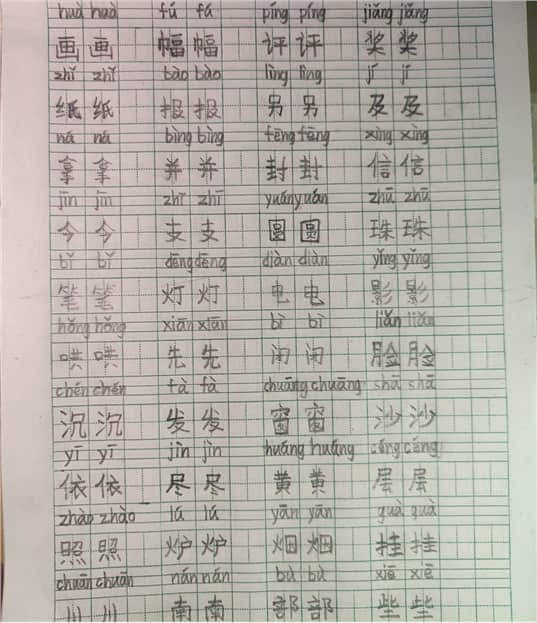 huà huà fú fú píng píng jiǎng jiǎng
画 画 幅 幅 评 评 奖 奖
zhǐ zhǐ bào bào lìng lìng jí jí
纸 纸 报 报 另 另 及 及
ná ná bìng bìng fēng fēng xìng xìng
拿 拿 并 并 封 封 信 信
jīn jīn zhī zhī yuán yuán zhū zhū
今 今 支 支 圆 圆 珠 珠
bǐ bǐ dēng dēng diàn diàn yǐng yǐng
笔 笔 灯 灯 电 电 影 影
hǒng hǒng xiān xiān bì bì liǎn liǎn
哄 哄 先 先 闭 闭 脸 脸
chén chén fà fà chuāng chuāng shā shā
沉 沉 发 发 窗 窗 沙 沙
yī yī jìn jìn huáng huáng céng céng
依 依 尽 尽 黄 黄 层 层
zhào zhào lú lú yān yān guà guà
照 照 炉 炉 烟 烟 挂 挂
chuān chuān nán nán bù bù xiē xiē
川 川 南 南 部 部 些 些